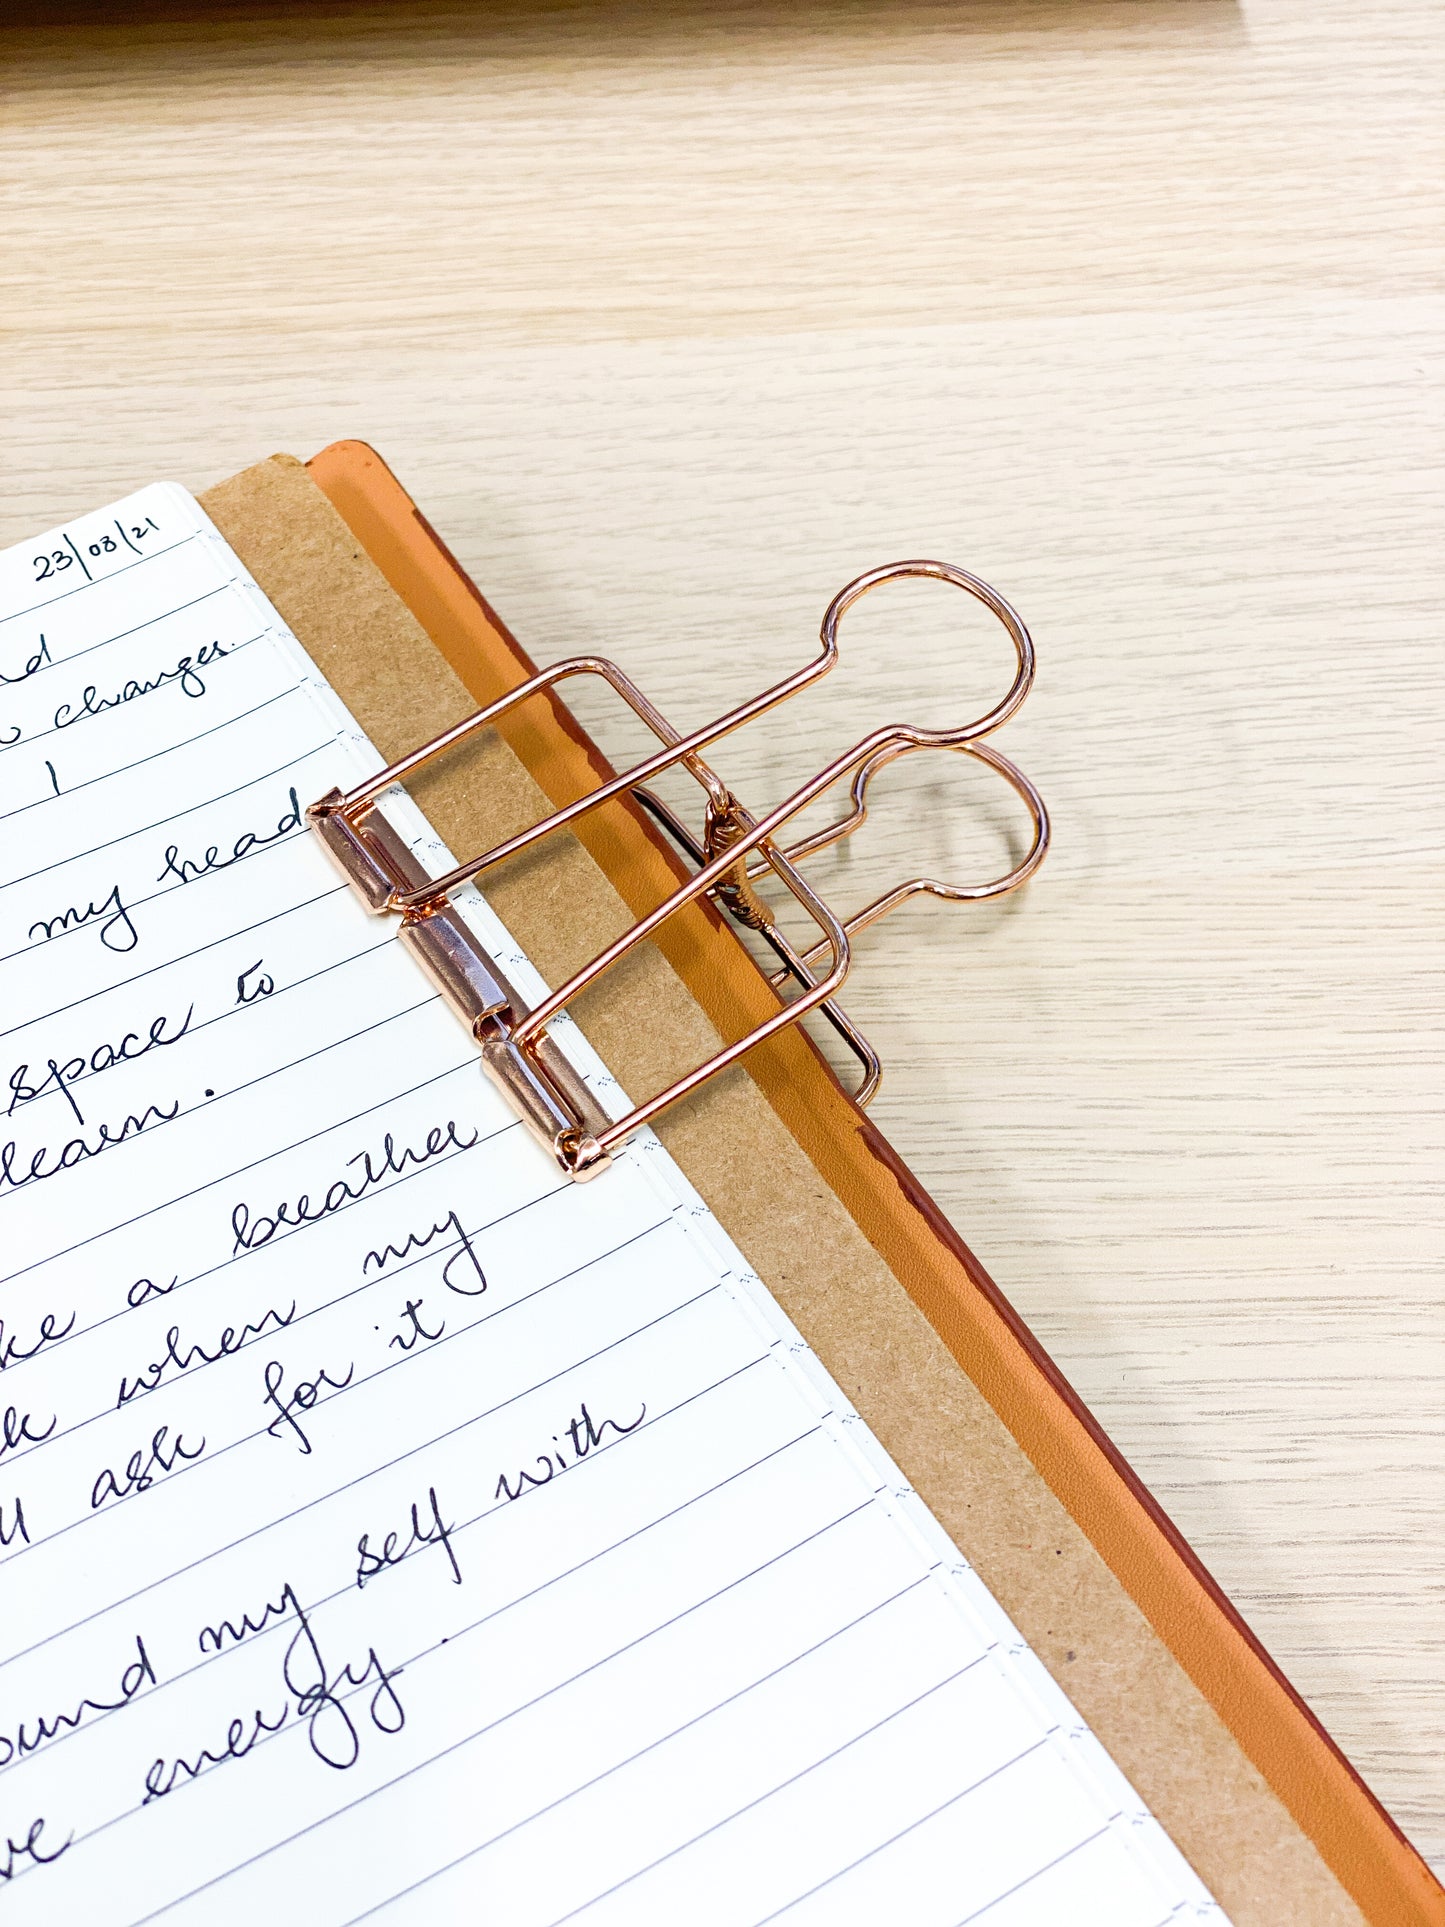 23/08/21
changes.
I
my head
space to
learn.
a breather
when my
ask for it
my self with
energy.